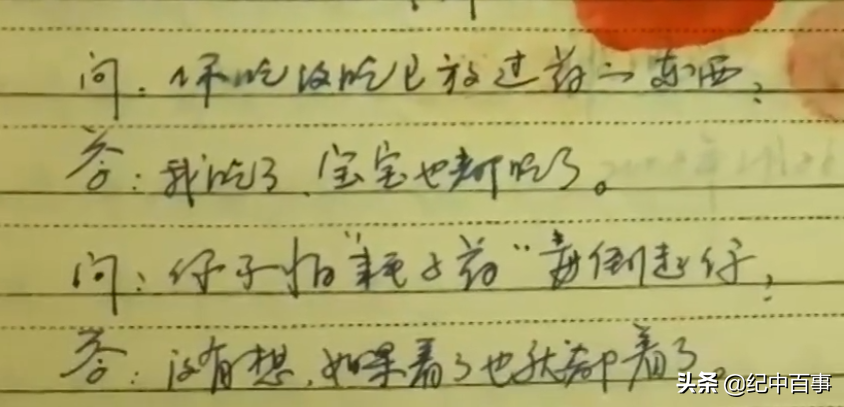 问：你吃没吃已放过药的东西？
答：我吃了、宝宝也都吃了。
问：仔子怕"耗子药"毒倒起仔？
答：没有想，如果着了也就都着了。
头条 @纪中百事